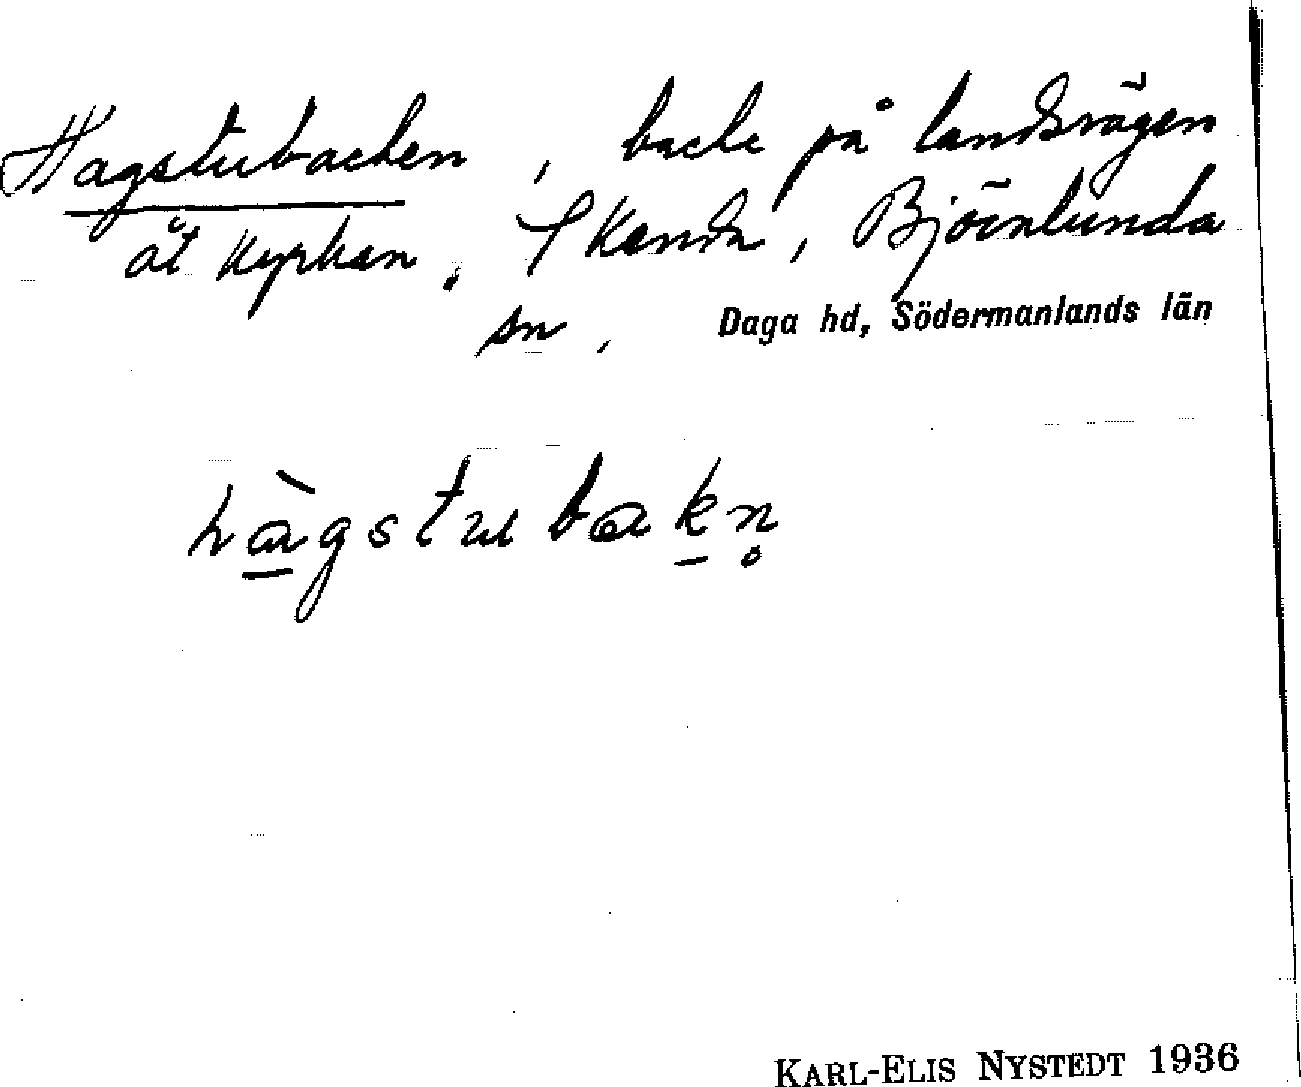 Hagstubacken, backe på landsvägen
åt kyrkan, Skanda, Björnlunda
sn, Daga hd, Södermanlands län
hàgstubakn̥
KARL-ELIS NYSTEDT 1936